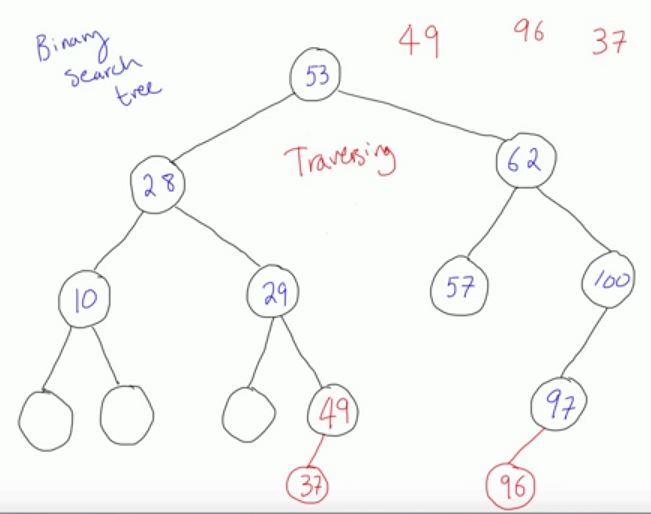 Binary
Search
tree
49
96
37
53
Traversing
28
62
10
29
57
100
49
97
37
96